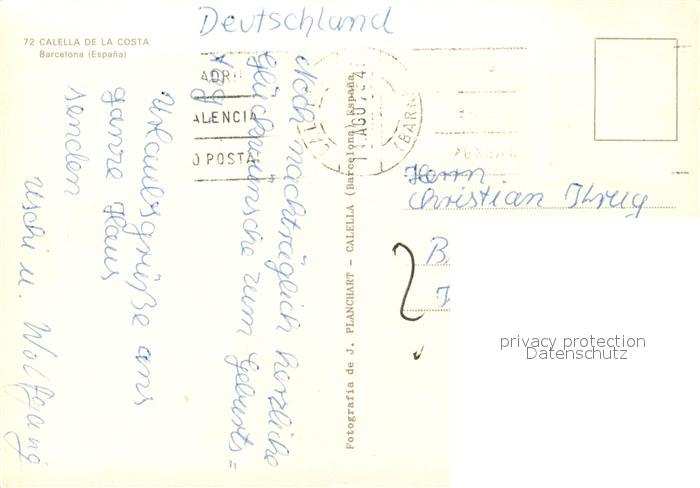 Deutschland
72 CALELLA DE LA COSTA
Barcelona (España)
Noch nachträglich herzliche
Glückwünsche zum Geburts=
tag
Urlaubsgrüße ans
ganze Haus
senden
Uschi u. Wolfgang
ALENCIA
O POSTAL
AGO
(BARN
Fotografía de J. PLANCHART - CALELLA (Barcelona) España
Herrn
Christian Krug
B
privacy protection
Datenschutz